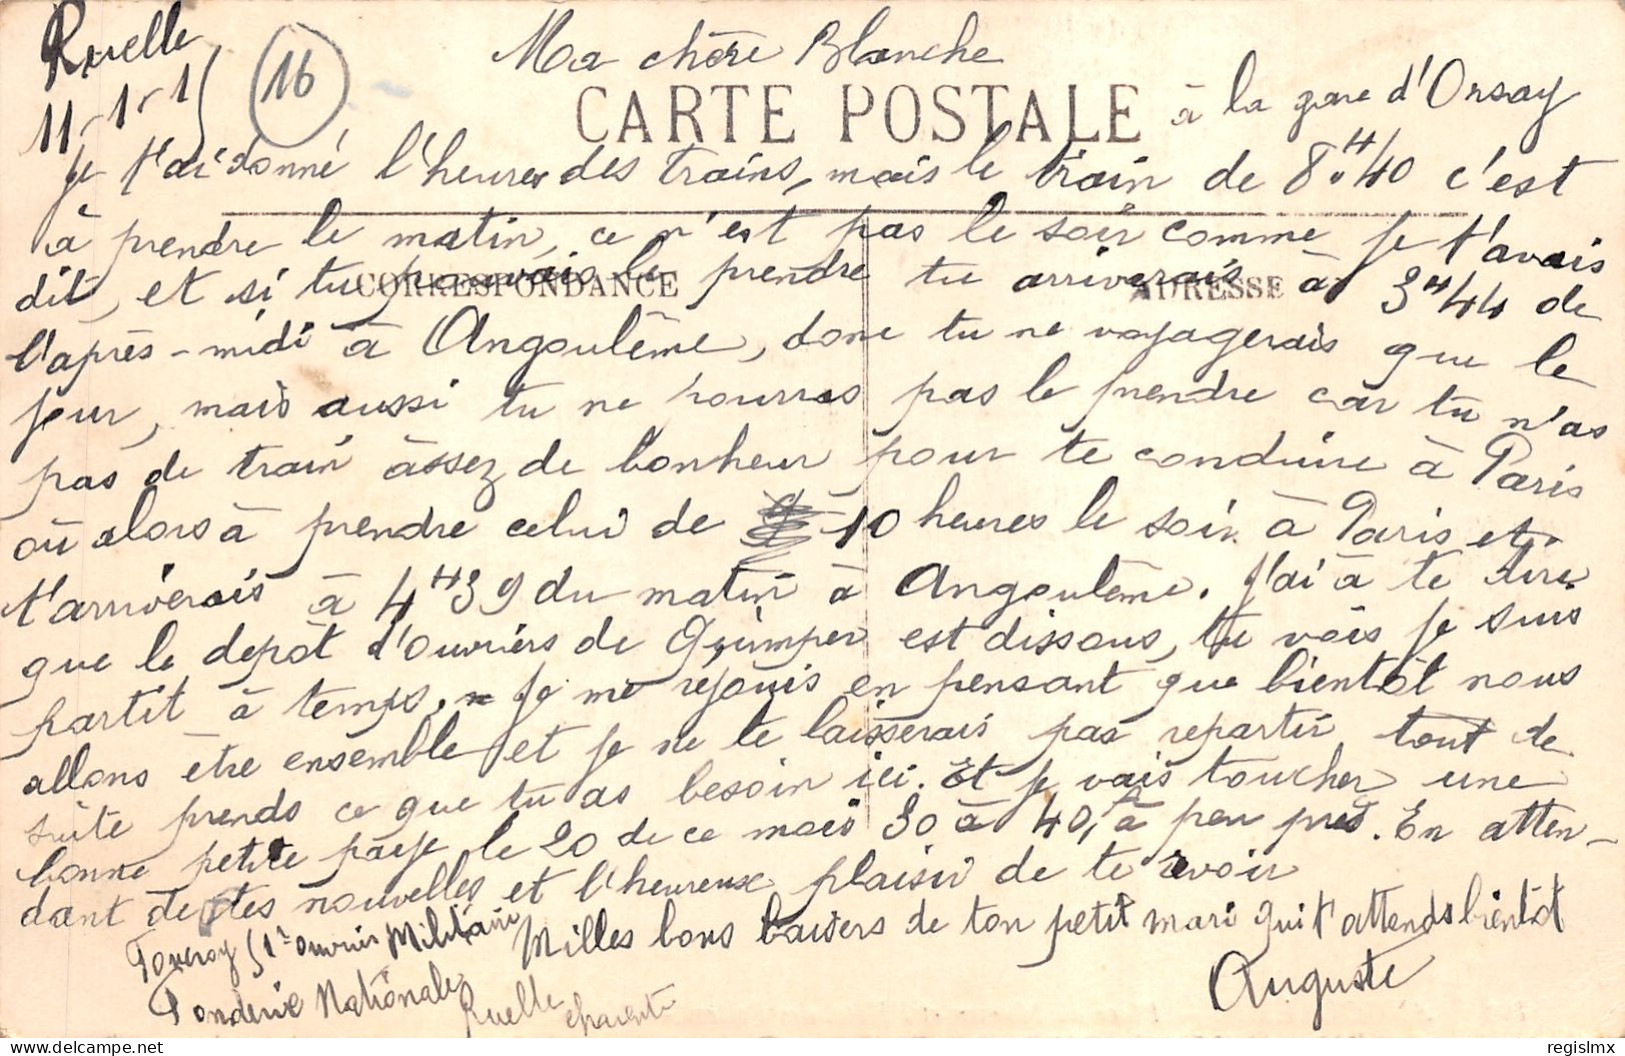 Ruelle
11-1-15
16
Ma chère Blanche
CARTE POSTALE
à la gare d'Orsay
Je t'ai donné l'heure des trains, mais le train de 8H40 c'est
à prendre le matin, ce n'est pas le soir comme je t'avais
CORRESPONDANCE
ADRESSE
dit, et si tu pouvais le prendre tu arriverais à 3H44 de
l'après-midi à Angoulême, donc tu ne voyagerais que le
jour, mais aussi tu ne pourras pas le prendre car tu n'as
pas de train assez de bonheur pour te conduire à Paris
où alors à prendre celui de 10 heures le soir à Paris et
t'arriverais à 4H39 du matin à Angoulême. J'ai à te dire
que le depôt d'ouvriers de Quimper est dissous, tu vois je suis
partit à temps. Je me rejouis en pensant que bientôt nous
allons être ensemble et je ne te laisserais pas repartir tout de
suite prends ce que tu as besoin ici. Et je vais toucher une
bonne petite paye le 20 de ce mois 30 à 40, à peu près. En atten-
dant de tes nouvelles et l'heureux plaisir de te revoir
Milles bons baisers de ton petit mari qui t'attends bientôt
Auguste
ouvrier Militaire
Fonderie Nationale
Ruelle Charente
regislmx